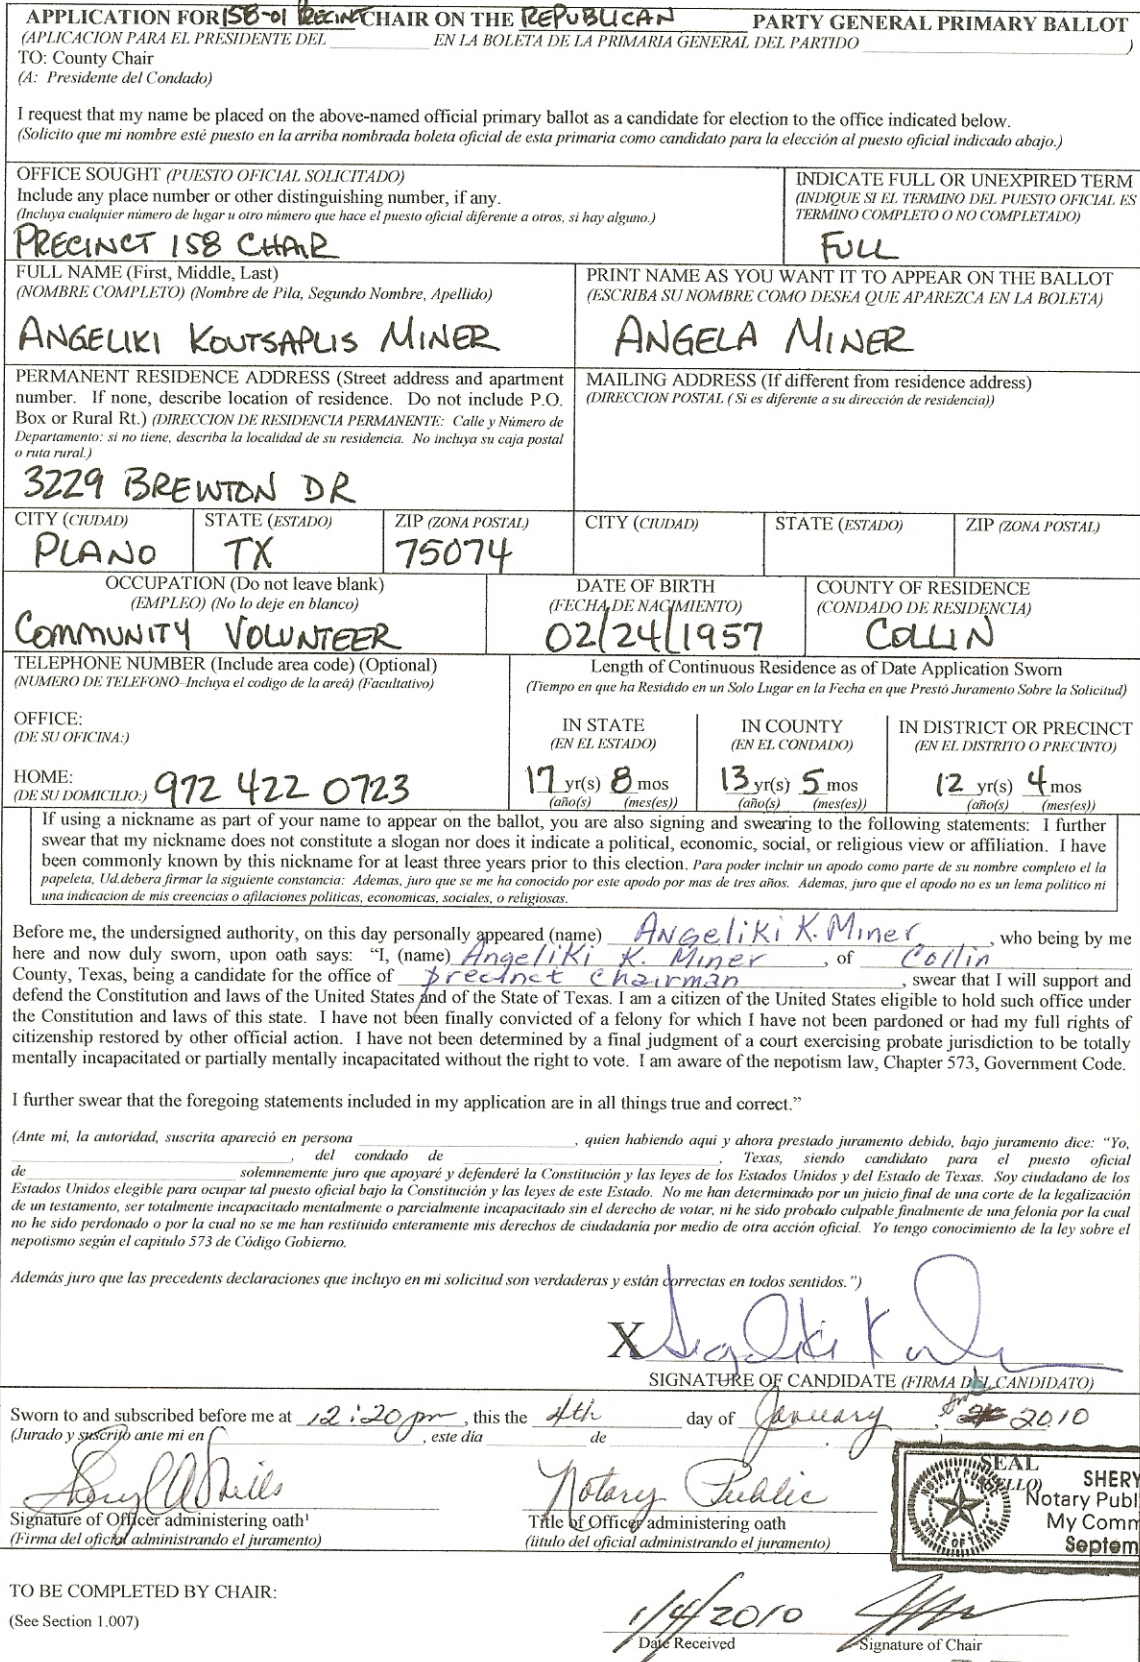 APPLICATION FOR 158-01 PRECINCT CHAIR ON THE REPUBLICAN PARTY GENERAL PRIMARY BALLOT
(APLICACION PARA EL PRESIDENTE DEL ____________ EN LA BOLETA DE LA PRIMARIA GENERAL DEL PARTIDO ____________)
TO: County Chair
(A: Presidente del Condado)
I request that my name be placed on the above-named official primary ballot as a candidate for election to the office indicated below.
(Solicito que mi nombre esté puesto en la arriba nombrada boleta oficial de esta primaria como candidato para la elección al puesto oficial indicado abajo.)
OFFICE SOUGHT (PUESTO OFICIAL SOLICITADO)
Include any place number or other distinguishing number, if any.
(Incluya cualquier número de lugar u otro número que hace el puesto oficial diferente a otros, si hay alguno.)
PRECINCT 158 CHAIR
INDICATE FULL OR UNEXPIRED TERM
(INDIQUE SI EL TERMINO DEL PUESTO OFICIAL ES
TERMINO COMPLETO O NO COMPLETADO)
FULL
FULL NAME (First, Middle, Last)
(NOMBRE COMPLETO) (Nombre de Pila, Segundo Nombre, Apellido)
ANGELIKI KOUTSAPLIS MINER
PRINT NAME AS YOU WANT IT TO APPEAR ON THE BALLOT
(ESCRIBA SU NOMBRE COMO DESEA QUE APAREZCA EN LA BOLETA)
ANGELA MINER
PERMANENT RESIDENCE ADDRESS (Street address and apartment
number. If none, describe location of residence. Do not include P.O.
Box or Rural Rt.) (DIRECCION DE RESIDENCIA PERMANENTE: Calle y Número de
Departamento: si no tiene, describa la localidad de su residencia. No incluya su caja postal
o ruta rural.)
3229 BREWTON DR
MAILING ADDRESS (If different from residence address)
(DIRECCION POSTAL ( Si es diferente a su dirección de residencia))
CITY (CIUDAD) STATE (ESTADO) ZIP (ZONA POSTAL) CITY (CIUDAD) STATE (ESTADO) ZIP (ZONA POSTAL)
PLANO TX 75074
OCCUPATION (Do not leave blank)
(EMPLEO) (No lo deje en blanco)
COMMUNITY VOLUNTEER
DATE OF BIRTH
(FECHA DE NACIMIENTO)
02/24/1957
COUNTY OF RESIDENCE
(CONDADO DE RESIDENCIA)
COLLIN
TELEPHONE NUMBER (Include area code) (Optional)
(NUMERO DE TELEFONO–Incluya el codigo de la areá) (Facultativo)
OFFICE:
(DE SU OFICINA:)
HOME: 972 422 0723
(DE SU DOMICILIO:)
Length of Continuous Residence as of Date Application Sworn
(Tiempo en que ha Residido en un Solo Lugar en la Fecha en que Prestó Juramento Sobre la Solicitud)
IN STATE IN COUNTY IN DISTRICT OR PRECINCT
(EN EL ESTADO) (EN EL CONDADO) (EN EL DISTRITO O PRECINTO)
17 yr(s) 8 mos 13 yr(s) 5 mos 12 yr(s) 4 mos
(año(s) (mes(es)) (año(s) (mes(es)) (año(s) (mes(es))
If using a nickname as part of your name to appear on the ballot, you are also signing and swearing to the following statements: I further
swear that my nickname does not constitute a slogan nor does it indicate a political, economic, social, or religious view or affiliation. I have
been commonly known by this nickname for at least three years prior to this election. Para poder incluir un apodo como parte de su nombre completo el la
papeleta, Ud.debera firmar la siguiente constancia: Ademas, juro que se me ha conocido por este apodo por mas de tres años. Ademas, juro que el apodo no es un lema politico ni
una indicacion de mis creencias o afilaciones politicas, economicas, sociales, o religiosas.
Before me, the undersigned authority, on this day personally appeared (name) Angeliki K. Miner, who being by me
here and now duly sworn, upon oath says: “I, (name) Angeliki K. Miner, of Collin
County, Texas, being a candidate for the office of precinct Chairman, swear that I will support and
defend the Constitution and laws of the United States and of the State of Texas. I am a citizen of the United States eligible to hold such office under
the Constitution and laws of this state. I have not been finally convicted of a felony for which I have not been pardoned or had my full rights of
citizenship restored by other official action. I have not been determined by a final judgment of a court exercising probate jurisdiction to be totally
mentally incapacitated or partially mentally incapacitated without the right to vote. I am aware of the nepotism law, Chapter 573, Government Code.
I further swear that the foregoing statements included in my application are in all things true and correct.”
(Ante mi, la autoridad, suscrita apareció en persona ____________, quien habiendo aqui y ahora prestado juramento debido, bajo juramento dice: “Yo,
____________, del condado de ____________, Texas, siendo candidato para el puesto oficial
de ____________ solemnemente juro que apoyaré y defenderé la Constitución y las leyes de los Estados Unidos y del Estado de Texas. Soy ciudadano de los
Estados Unidos elegible para ocupar tal puesto oficial bajo la Constitución y las leyes de este Estado. No me han determinado por un juicio final de una corte de la legalización
de un testamento, ser totalmente incapacitado mentalmente o parcialmente incapacitado sin el derecho de votar, ni he sido probado culpable finalmente de una felonia por la cual
no he sido perdonado o por la cual no se me han restituido enteramente mis derechos de ciudadania por medio de otra acción oficial. Yo tengo conocimiento de la ley sobre el
nepotismo según el capitulo 573 de Código Gobierno.
Además juro que las precedents declaraciones que incluyo en mi solicitud son verdaderas y están correctas en todos sentidos.”)
X
SIGNATURE OF CANDIDATE (FIRMA DEL CANDIDATO)
Sworn to and subscribed before me at 12:20 pm, this the 4th day of January, 2010
(Jurado y suscrito ante mi en ____________, este día ____________ de
Sheryl A Mills Notary Public
Signature of Officer administering oath¹ Title of Officer administering oath
(Firma del oficial administrando el juramento) (titulo del oficial administrando el juramento)
SEAL
NOTARY PUBLIC
STATE OF TEXAS
SHERY
Notary Publ
My Comm
Septem
TO BE COMPLETED BY CHAIR:
(See Section 1.007)
1/4/2010
Date Received Signature of Chair